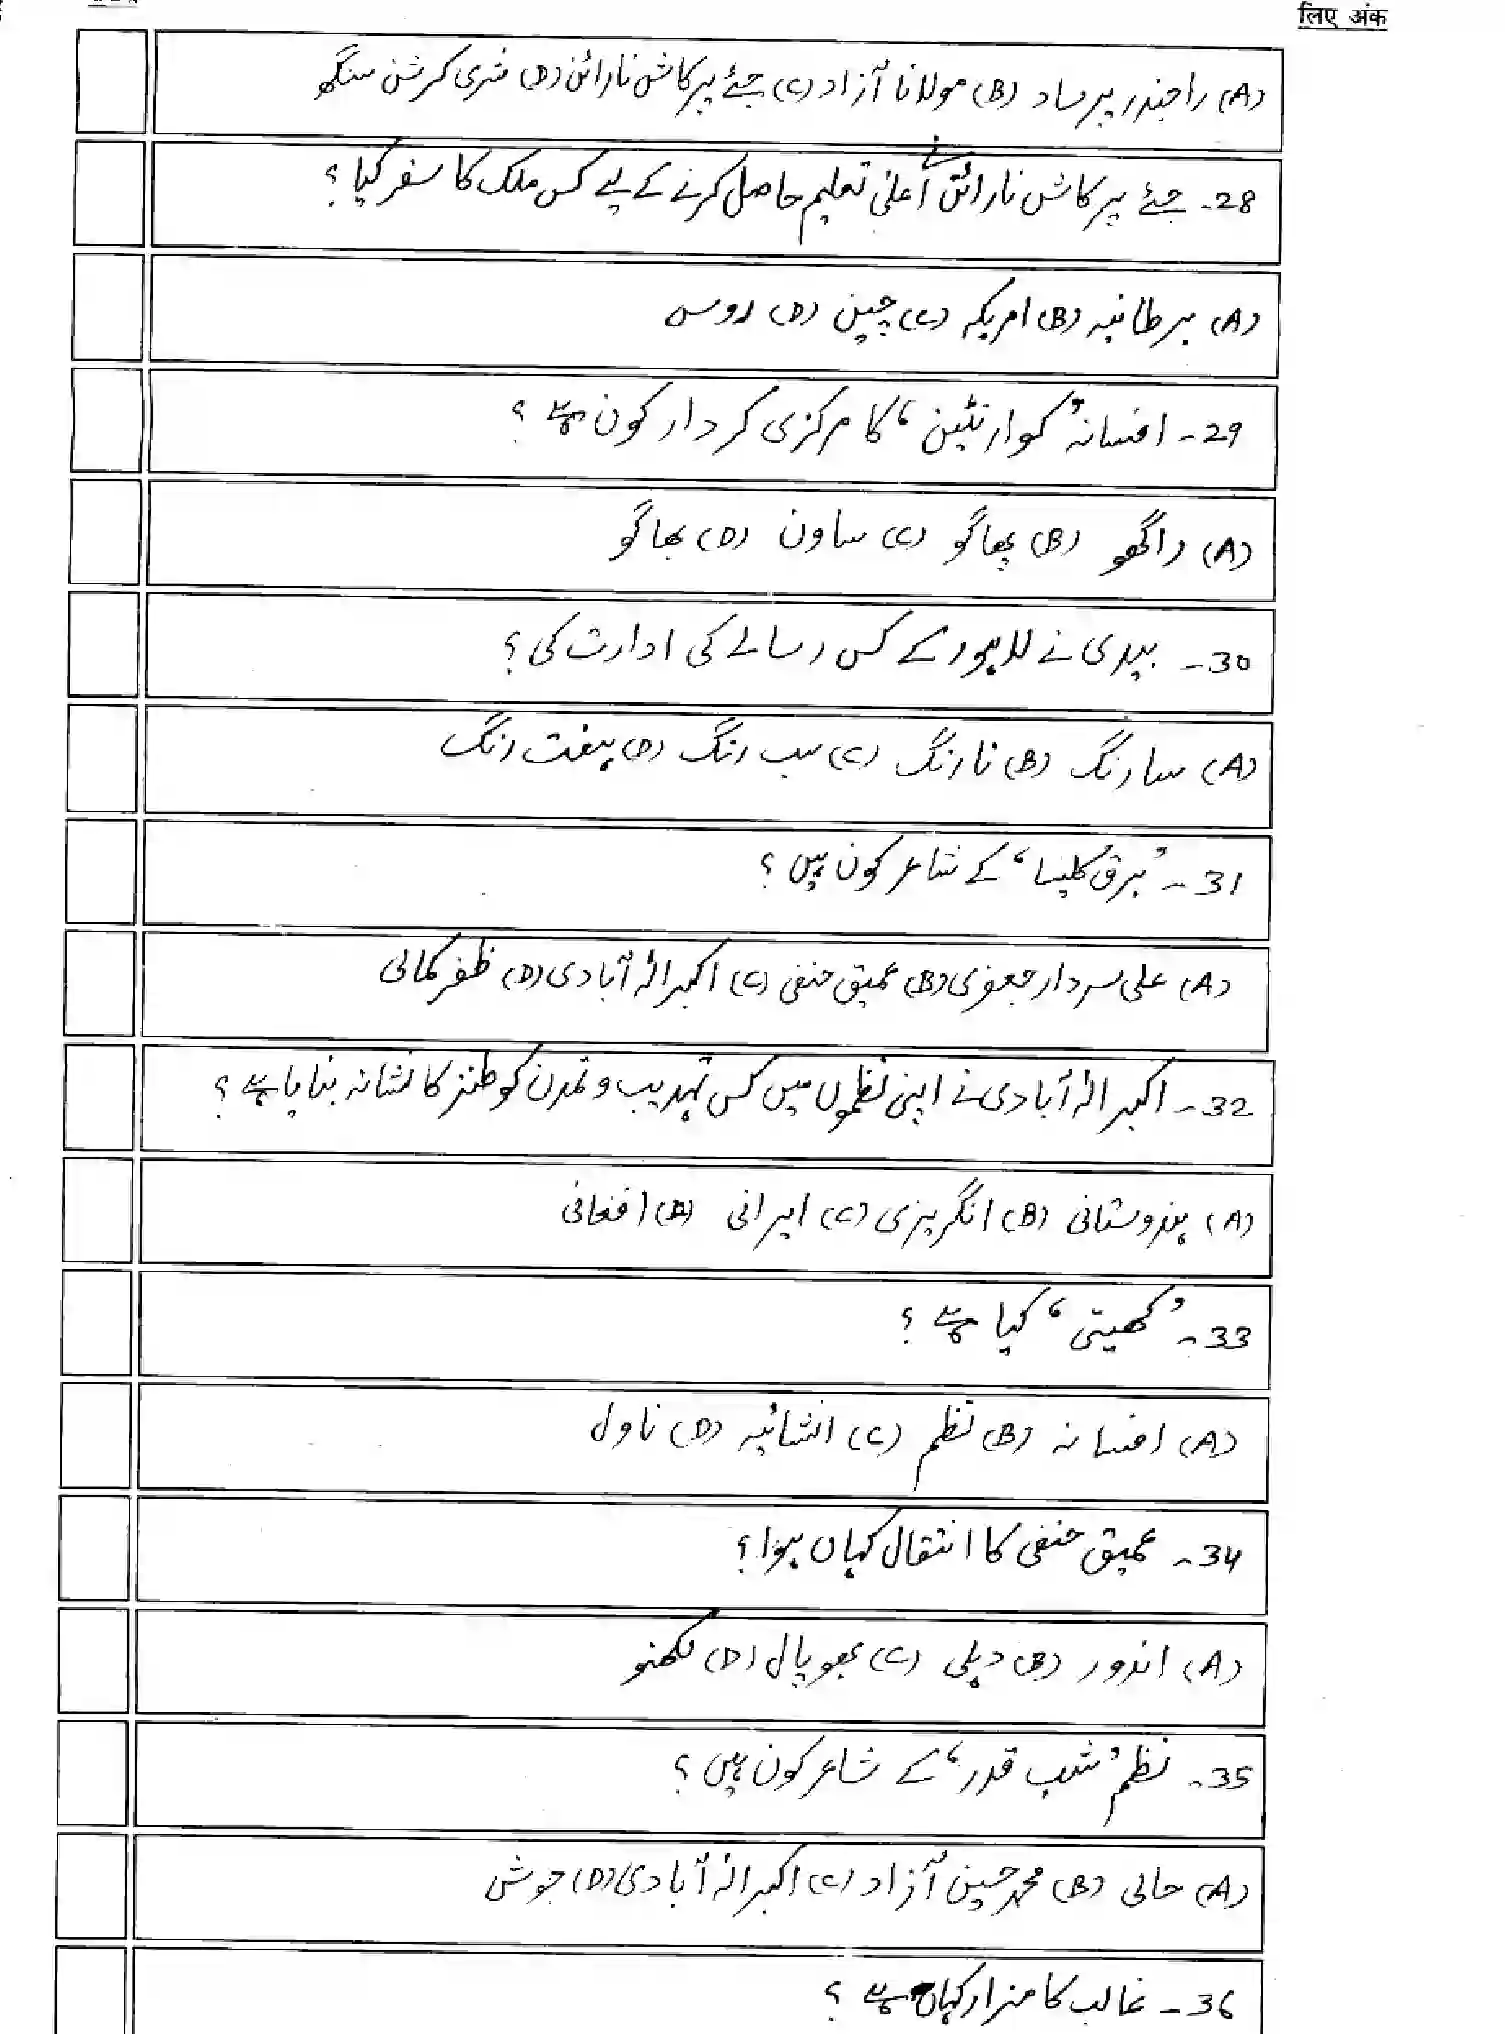 लिए अंक
(A) راجندر پرساد (B) مولانا آزاد (C) جئے پرکاش نارائن (D) شری کرشن سنگھ
28۔ جئے پرکاش نارائن نے اعلیٰ تعلیم حاصل کرنے کے لیے کس ملک کا سفر کیا؟
(A) برطانیہ (B) امریکہ (C) چین (D) روس
29۔ افسانہ ’کوارنٹین‘ کا مرکزی کردار کون ہے؟
(A) راگھو (B) پھاگو (C) ساون (D) بھاگو
30۔ بیدی نے لاہور کے کس رسالے کی ادارت کی؟
(A) سارنگ (B) نارنگ (C) سب رنگ (D) ہفت رنگ
31۔ ’برق کلیسا‘ کے شاعر کون ہیں؟
(A) علی سردار جعفری (B) عمیق حنفی (C) اکبر الہ آبادی (D) ظفر کمالی
32۔ اکبر الہ آبادی نے اپنی نظموں میں کس تہذیب و تمدن کو طنز کا نشانہ بنایا ہے؟
(A) ہندوستانی (B) انگریزی (C) ایرانی (D) افغانی
33۔ ’کھیتی‘ کیا ہے؟
(A) افسانہ (B) نظم (C) انشائیہ (D) ناول
34۔ عمیق حنفی کا انتقال کہاں ہوا؟
(A) اندور (B) دہلی (C) بھوپال (D) لکھنو
35۔ نظم ’شب قدر‘ کے شاعر کون ہیں؟
(A) حالی (B) محمد حسین آزاد (C) اکبر الہ آبادی (D) جوش
36۔ غالب کا مزار کہاں ہے؟